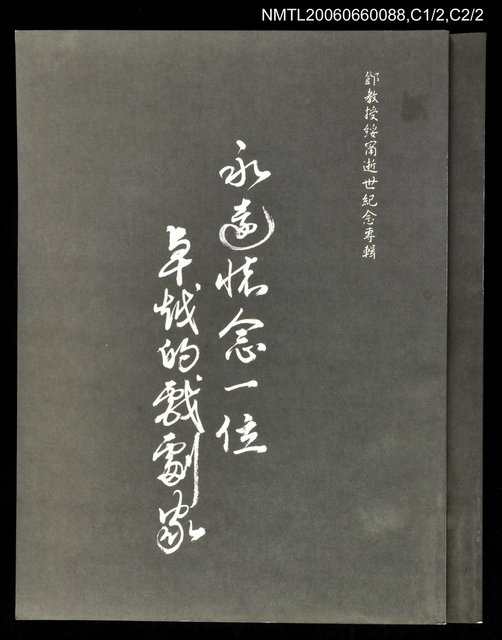 NMTL20060660088,C1/2,C2/2
鄧教授綏甯逝世紀念專輯
永遠懷念一位
卓越的戲劇家